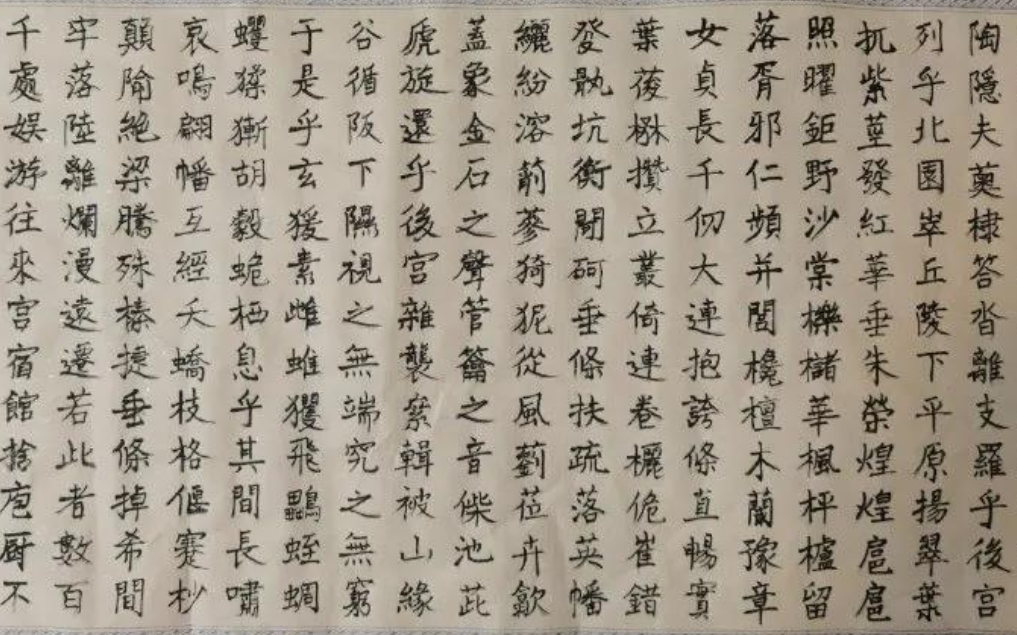 陶隱夫薁棣答沓離支羅乎後宮
列乎北園崒丘陵下平原揚翠葉
扤紫莖發紅華垂朱榮煌煌扈扈
照曜鉅野沙棠櫟櫧華楓枰櫨留
落胥邪仁頻并閭欃檀木蘭豫章
女貞長千仞大連抱誇條直暢實
葉葰楙攢立叢倚連卷欐佹崔錯
癹骫坑衡閜砢垂條扶疏落英幡
纚紛溶箾蔘猗狔從風藰莅卉歙
蓋象金石之聲管籥之音偨池茈
虒旋還乎後宮雜襲絫輯被山緣
谷循阪下隰視之無端究之無窮
于是乎玄猨素雌蜼玃飛鸓蛭蜩
蠼猱獑胡豰蛫栖息乎其間長嘯
哀鳴翩幡互經夭蟜枝格偃蹇杪
顛隃絕梁騰殊榛捷垂條掉希間
牢落陸離爛漫遠遷若此者數百
千處娛游往來宮宿館捨庖廚不